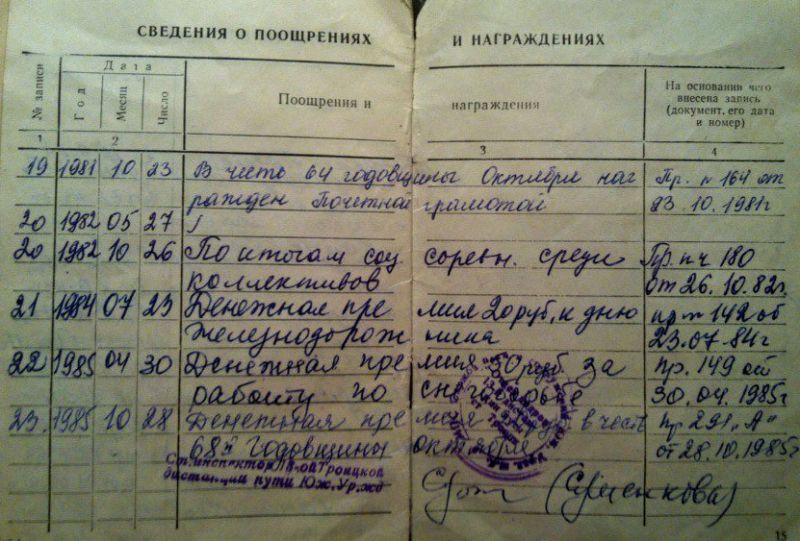 СВЕДЕНИЯ О ПООЩРЕНИЯХ И НАГРАЖДЕНИЯХ
№ записи
Дата
Год
Месяц
Число
Поощрения и награждения
На основании чего
внесена запись
(документ, его дата
и номер)
1 2 3 4
19 1981 10 23 В честь 64 годовщины Октября наг Пр. № 164 от
ражден Почетной грамотой 23.10.1981г
20 1982 05 27
20 1982 10 26 По итогам соц соревн. среди Пр. пч 180
коллективов от 26.10.82г
21 1984 07 23 Денежная пре мия 20 руб, к дню пр № 142 об
железнодорож ника 23.07.84г
22 1985 04 30 Денежная пре мия руб. за пр. 149 от
работу по 30.04.1985г
23. 1985 10 28 Денежная пре мия в честь пр 291 "А"
68й годовщины октября от 28.10.1985г
Ст. инспектор Троицкой
дистанции пути Юж. Ур. жд
15